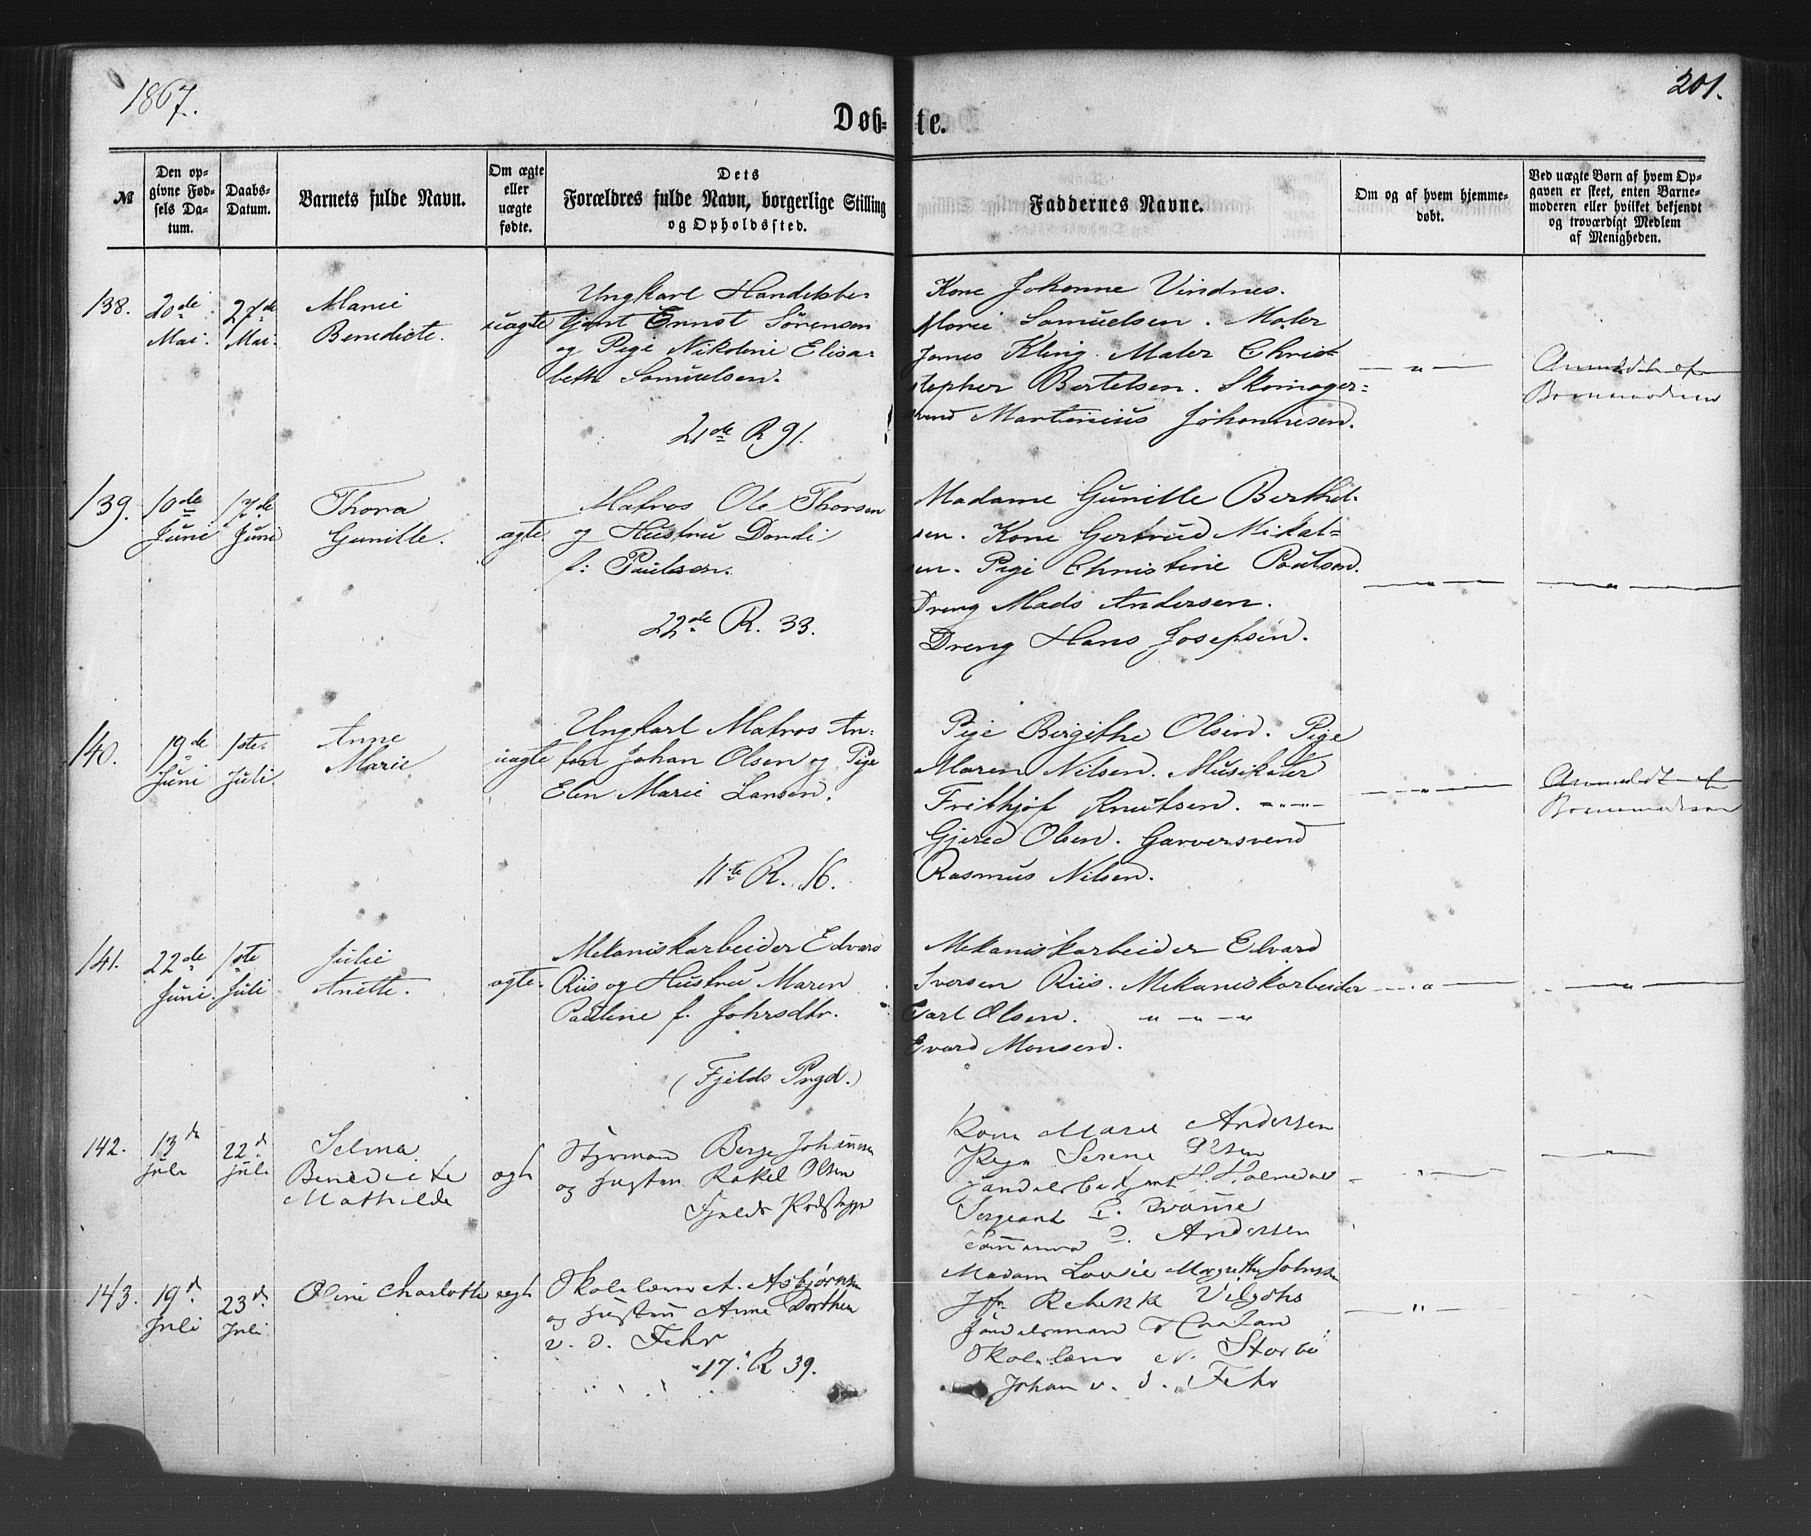 1867.
201.
Døb-
te.
№
Den op-
givne Fød-
sels Da-
tum.
Daabs-
Datum.
Barnets fulde Navn.
Om ægte
eller
uægte
fødte.
Dets
Forældres fulde Navn, borgerlige Stilling
og Opholdssted.
Faddernes Navne.
Om og af hvem hjemme-
døbt.
Ved uægte Børn af hvem Op-
gaven er skeet, enten Barne-
moderen eller hvilket bekjendt
og troværdigt Medlem
af Menigheden.
138.
20de
Mai.
27de
Mai.
Marie
Benedicte.
uægte
Ungkarl Handelsbe-
tjent Ernst Sørensen
og Pige Nikoline Elisa-
beth Samuelsen.
21de R 91.
Kone Johanne Vindnes.
Marie Samuelsen. Maler
James Kling. Maler Chris-
topher Bertelsen. Skomager-
svend Martinius Johannesen.
— " —
Anmeldt af
Barnemoderen
139.
10de
Juni
17de
Juni
Thora
Gunille.
ægte
Matros Ole Thorsen
og Hustru Dordi
f: Paulsen.
22de R. 33.
Madame Gunille Berthel-
sen. Kone Gertrud Nikol-
sen. Pige Christine Poulsen.
Dreng Mads Andersen.
Dreng Hans Josefsen.
— " —
— " —
140.
19de
Juni
1ste
Juli
Anne
Marie
uægte
Ungkarl Matros An-
ton Johan Olsen og Pige
Elen Marie Larsen.
11te R. 16.
Pige Birgithe Olsen. Pige
Maren Nilsen. Musikaler
Frithjof Knutsen. — " —
Gjered Olsen. Garversvend
Rasmus Nilsen.
— " —
Anmeldt af
Barnemoderen
141.
22de
Juni
1ste
Juli
Julie
Anette.
ægte.
Mekaniskarbeider Edvard
Riis og Hustru Maren
Pauline f. Johrsdtr.
(Fjelds Prgd.)
Mekaniskarbeider Edvard
Iversen Riis. Mekaniskarbeider
Carl Olsen. " — " — "
Edvard Monsen.
— " —
— " —
142.
13de
Juli
22de
Juli
Selma
Benedicte
Mathilde
ægte
Styrmand Berge Johannesen
og Hustru Rakel Olsen
Fjelds Præstegj.
Kone Marie Andersen
Pige Serene Olsen
Handelsbetjent H. Holmedal
Sergeant
Andersen
— " —
— " —
143.
19de
Juli
23de
Juli
Oline Charlotte
ægte
Skolelærer A. Asbjørnsen
og Hustru Anne Dorthea
v. d. Fehr
17. R 39.
Madam Lovise Margrethe Johnsen
Jfr. Rebekka
Handelsmand
Skolelærer N. Storbø
Johan v. d. Fehr
— " —